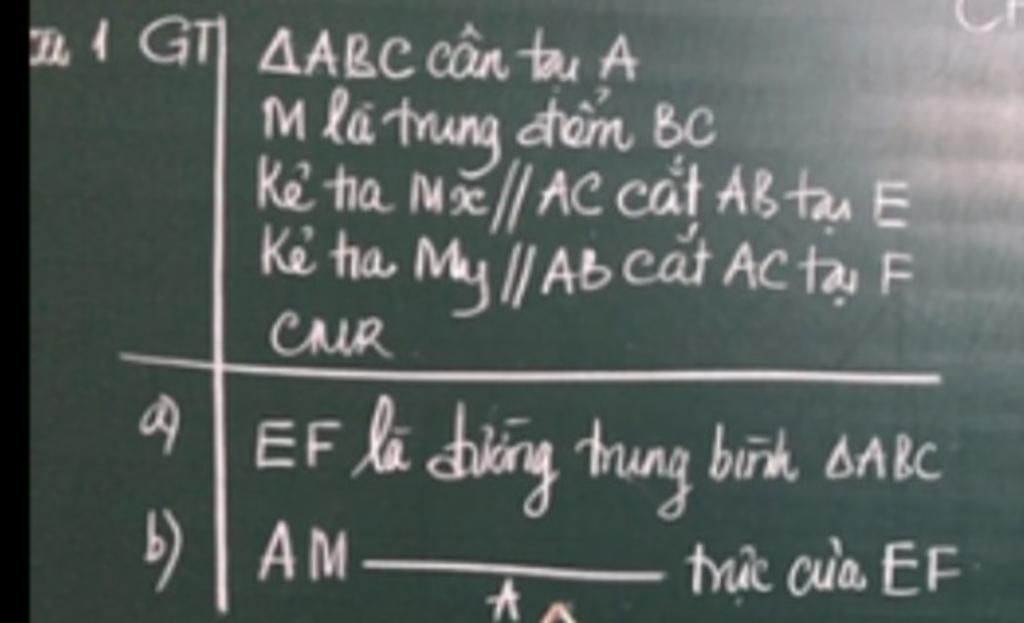 1 GT ΔABC cân tại A
M là trung điểm BC
Kẻ tia Mx // AC cắt AB tại E
Kẻ tia My // AB cắt AC tại F
CMR
a) EF là đường trung bình ΔABC
b) AM ——— trực của EF
A